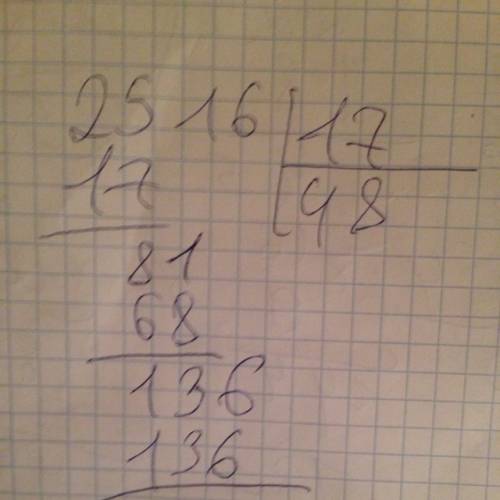 2516 17
17 48
81
68
136
136